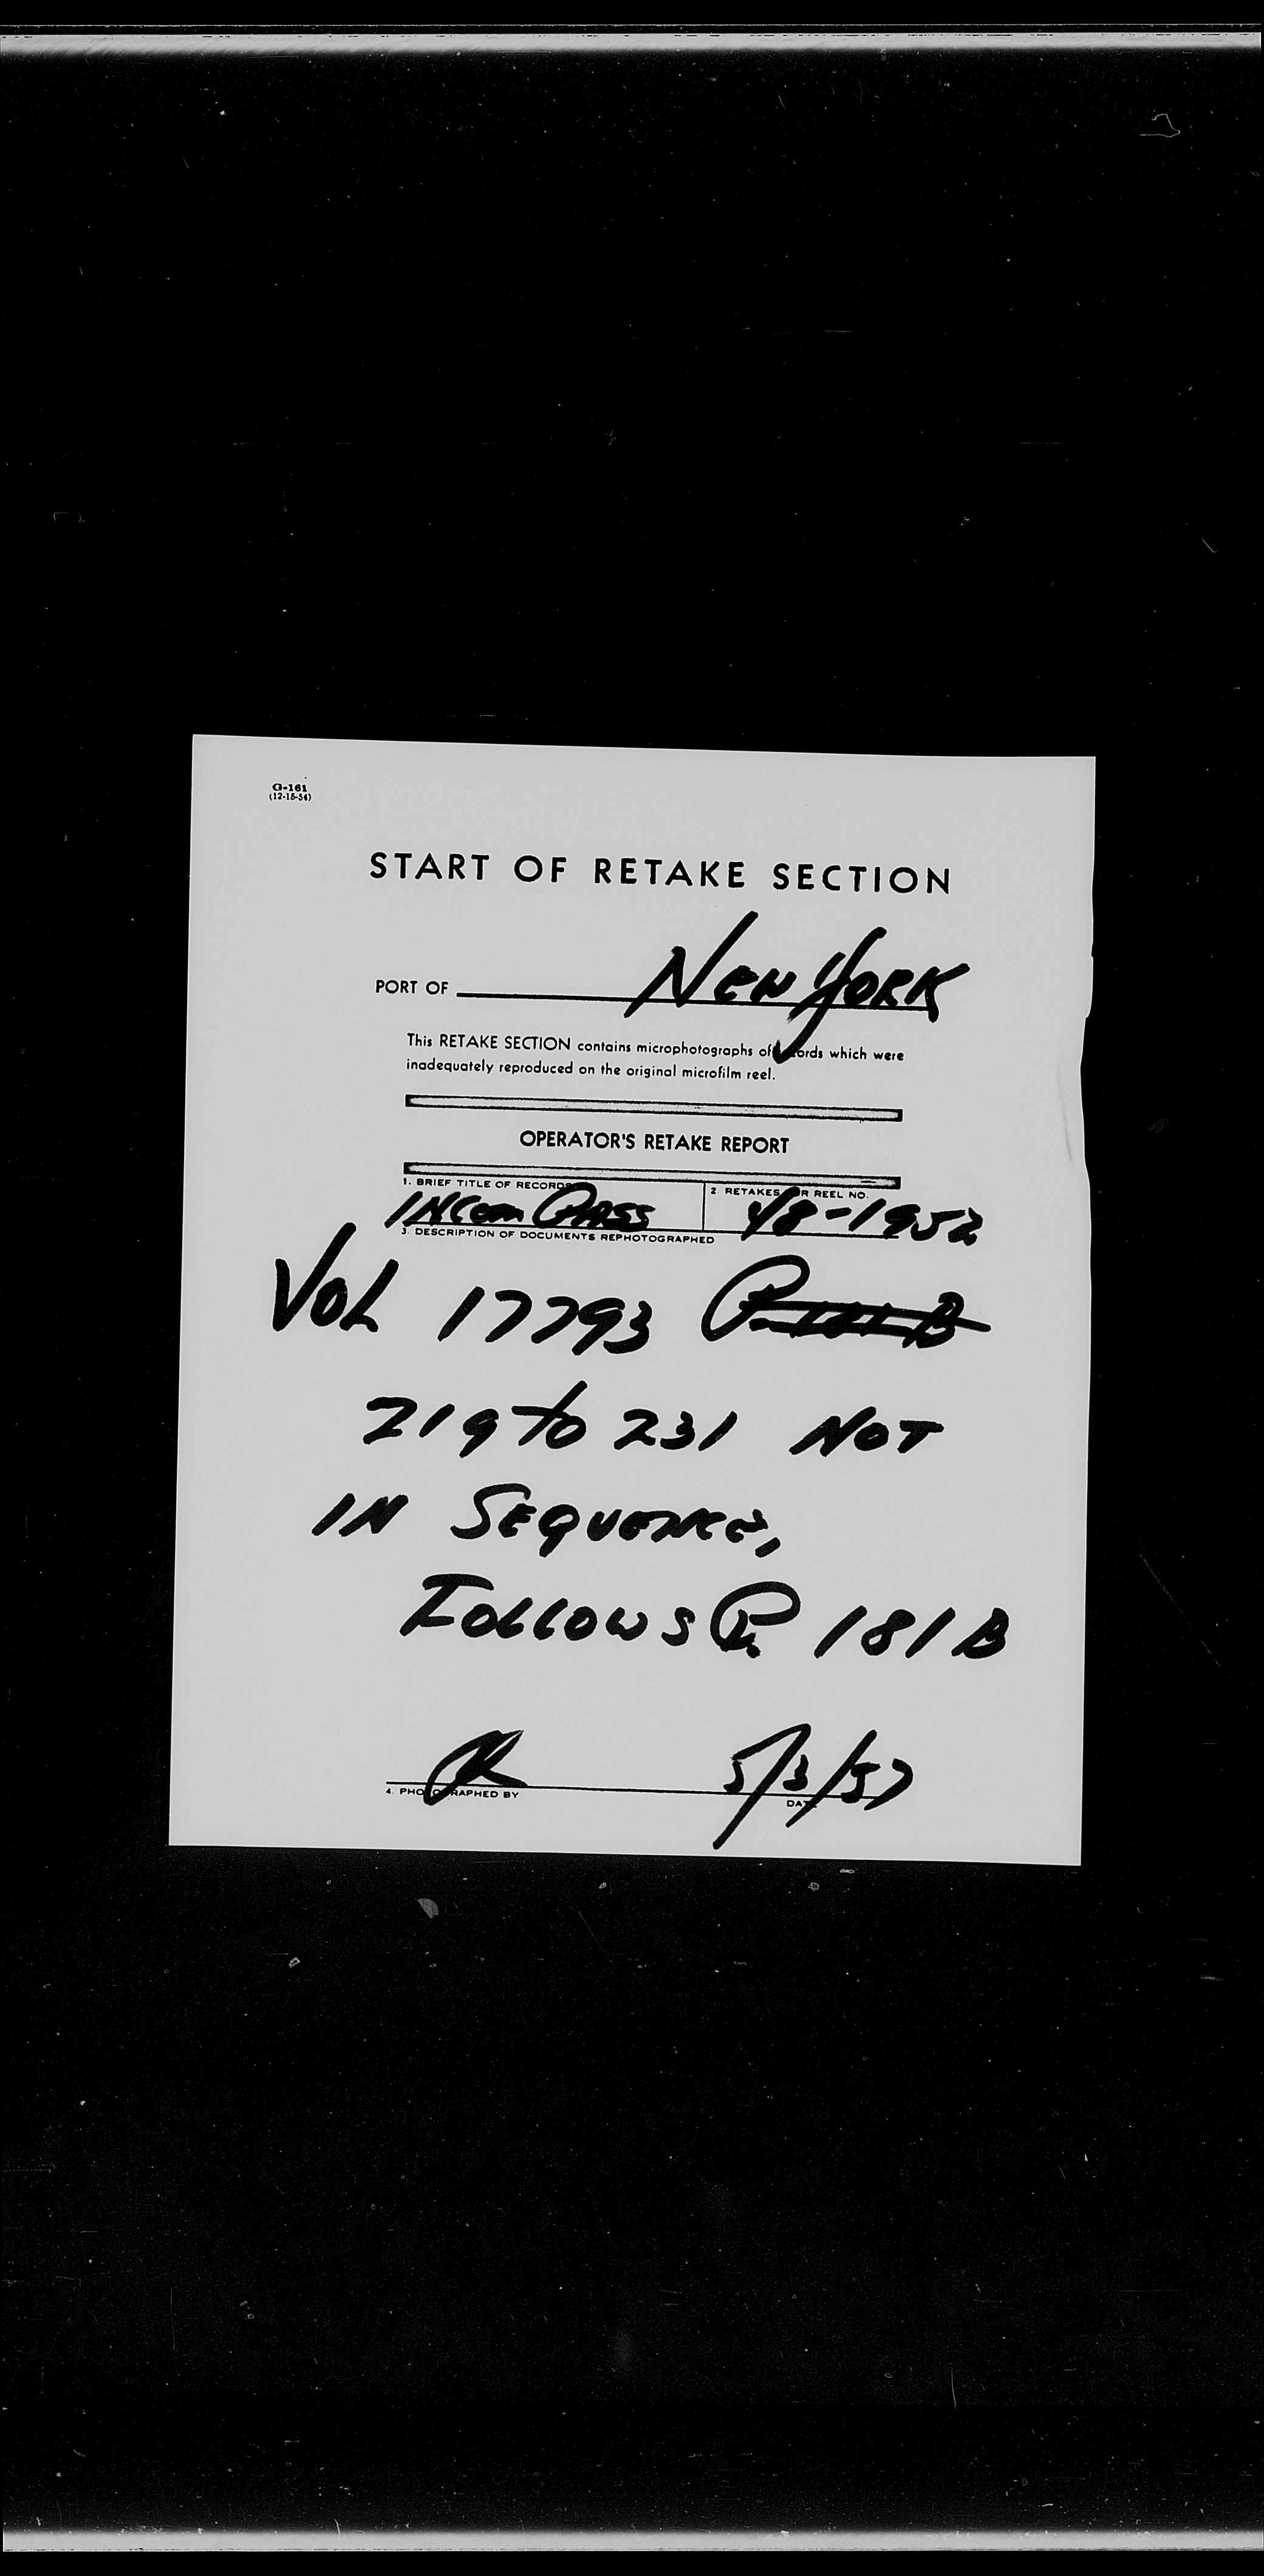 G-161
(12-15-54)
START OF RETAKE SECTION
PORT OF New York
This RETAKE SECTION contains microphotographs of records which were
inadequately reproduced on the original microfilm reel.
OPERATOR'S RETAKE REPORT
1. BRIEF TITLE OF RECORDS
2. RETAKES FOR REEL NO.
INCom PASS
48-1952
3. DESCRIPTION OF DOCUMENTS REPHOTOGRAPHED
VOL 17793
219 to 231 NOT
IN SEQUENCE,
FOLLOWS P. 181 B
5/3/57
4. PHOTOGRAPHED BY
DATE